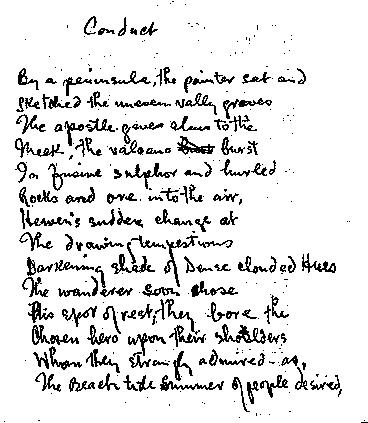 Conduct
By a peninsula, the painter sat and
Sketched the uneven vally groves
The apostle gives alms to the
Meek, the valcano burst
In fusive sulphor and hurled
Rocks and ore into the air,
Heaven's sudden change at
The drawing tempestious
Darkening shade of Dense clouded Hues
The wanderer soon chose
His spot of rest, they bore the
Chosen hero upon their shoulders
Whom they strangly admired - as,
The Beach tide Summer of people desired,